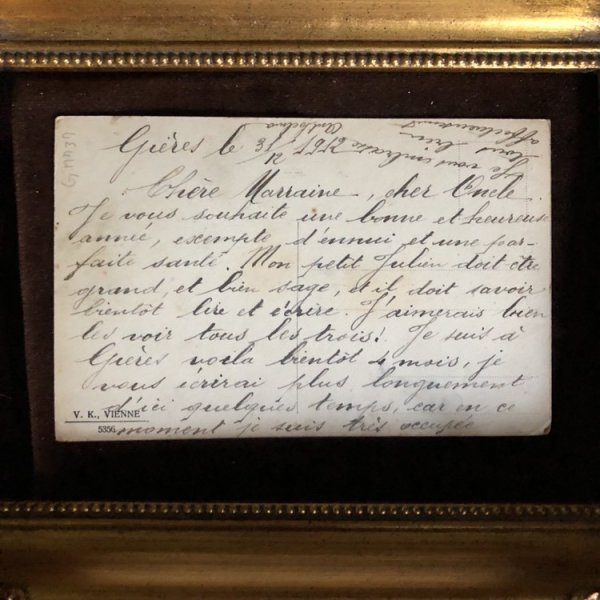 Gières le
Chère Marraine, cher Oncle
Je vous souhaite une bonne et heureuse
année, exempte d'ennui et une par-
faite santé. Mon petit Julien doit être
grand, et bien sage, et il doit savoir
bientôt lire et écrire. J'aimerais bien
les voir tous les trois! Je suis à
Gières voila bientôt 4 mois, je
vous écrirai plus longuement
d'ici quelques temps, car en ce
moment je suis très occupée
Je vous embrasse
tous bien
affectueusement
V. K., VIENNE
5356